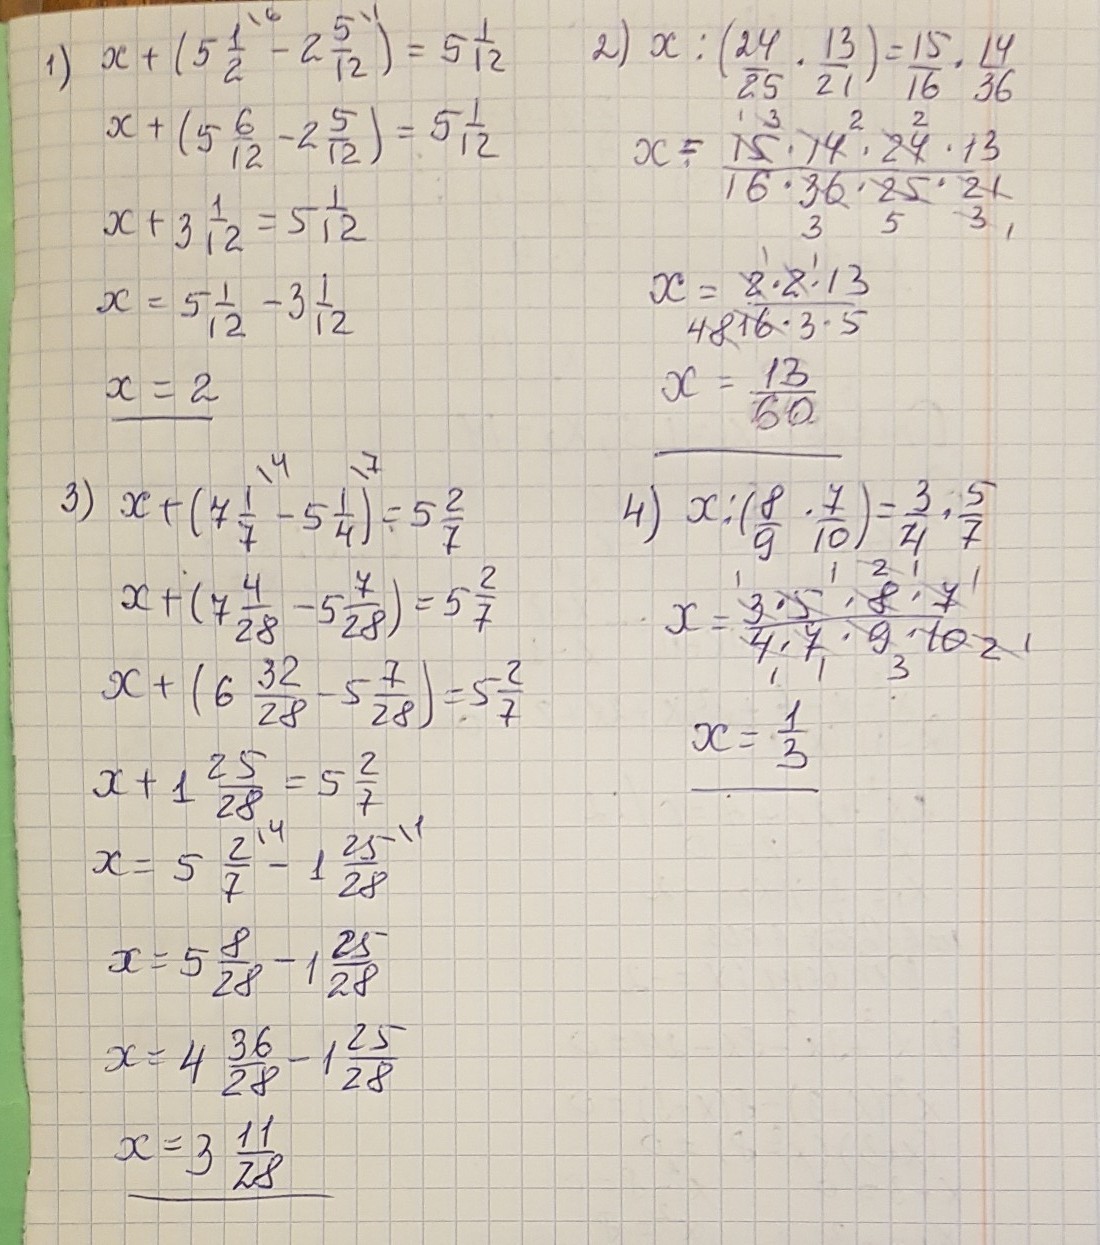 1) x + (5 1/2 \6 − 2 5/12 \1) = 5 1/12
x + (5 6/12 − 2 5/12) = 5 1/12
x + 3 1/12 = 5 1/12
x = 5 1/12 − 3 1/12
x = 2
2) x : (24/25 · 13/21) = 15/16 · 14/36
1 3 2 2
x = 15 · 14 · 24 · 13 / 16 · 36 · 25 · 21
3 5 3 1
1 1
x = 2 · 2 · 13 / 48 16 · 3 · 5
x = 13/60
3) x + (7 1/7 \4 − 5 1/4 \7) = 5 2/7
x + (7 4/28 − 5 7/28) = 5 2/7
x + (6 32/28 − 5 7/28) = 5 2/7
x + 1 25/28 = 5 2/7
x = 5 2/7 \4 − 1 25/28 \1
x = 5 8/28 − 1 25/28
x = 4 36/28 − 1 25/28
x = 3 11/28
4) x : (8/9 · 7/10) = 3/4 · 5/7
1 1 2 1 1
x = 3 · 5 · 8 · 7 / 4 · 7 · 9 · 10 2 1
1 1 3
x = 1/3